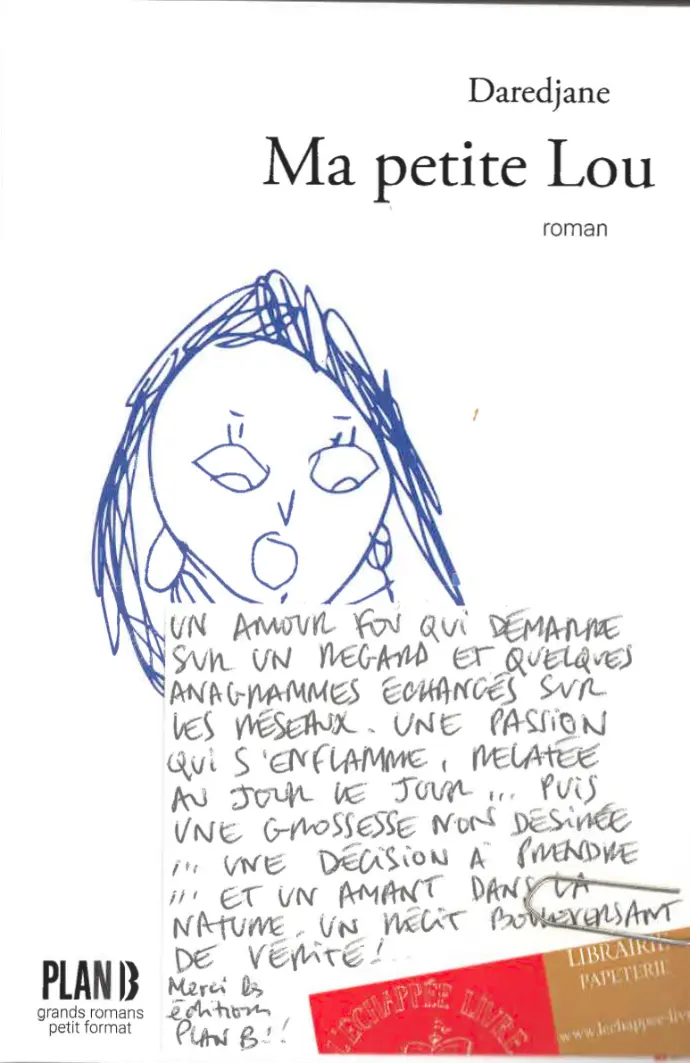 Daredjane
Ma petite Lou
roman
UN AMOUR FOU QUI DÉMARRE
SUR UN REGARD ET QUELQUES
ANAGRAMMES ÉCHANGÉS SUR
LES RÉSEAUX. UNE PASSION
QUI S'ENFLAMME, RELATÉE
AU JOUR LE JOUR ... PUIS
UNE GROSSESSE NON DÉSIRÉE
... UNE DÉCISION À PRENDRE
... ET UN AMANT DANS LA
NATURE. UN RÉCIT BOULEVERSANT
DE VÉRITÉ!
Merci les
éditions
PLAN B!!
PLAN B
grands romans
petit format
L'ECHAPPÉE LIVRE
LIBRAIRIE
PAPETERIE
www.lechappee-liv